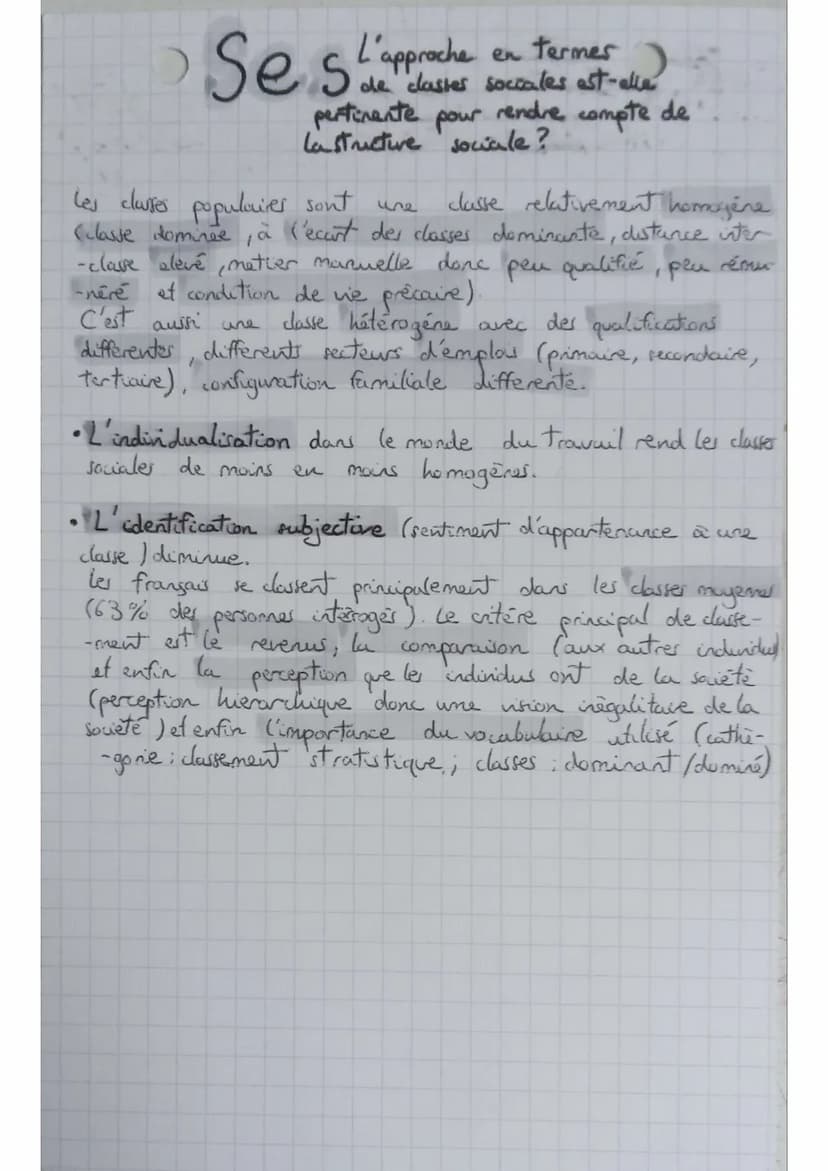 Ses L'approche en termes
de classes sociales est-elle
pertinente pour rendre compte de
la structure sociale ?
Les classes populaires sont une classe relativement homogène
(classe dominée, à l'écart des classes dominante, distance inter-
-classe élevé, métier manuelle donc peu qualifié, peu rému-
-néré et condition de vie précaire).
C'est aussi une classe hétérogène avec des qualifications
différentes, différents secteurs d'emplois (primaire, secondaire,
tertiaire), configuration familiale différente.
• L'individualisation dans le monde du travail rend les classes
sociales de moins en moins homogènes.
• L'identification subjective (sentiment d'appartenance à une
classe) diminue.
Les français se classent principalement dans les classes moyennes
(63% des personnes intérrogés). Le critère principal de classe-
-ment est le revenus, la comparaison (aux autres individus)
et enfin la perception que les individus ont de la société
(perception hierarchique donc une vision inégalitaire de la
société) et enfin l'importance du vocabulaire utilisé (cathé-
-gorie : classement stratistique ; classes : dominant/dominé)